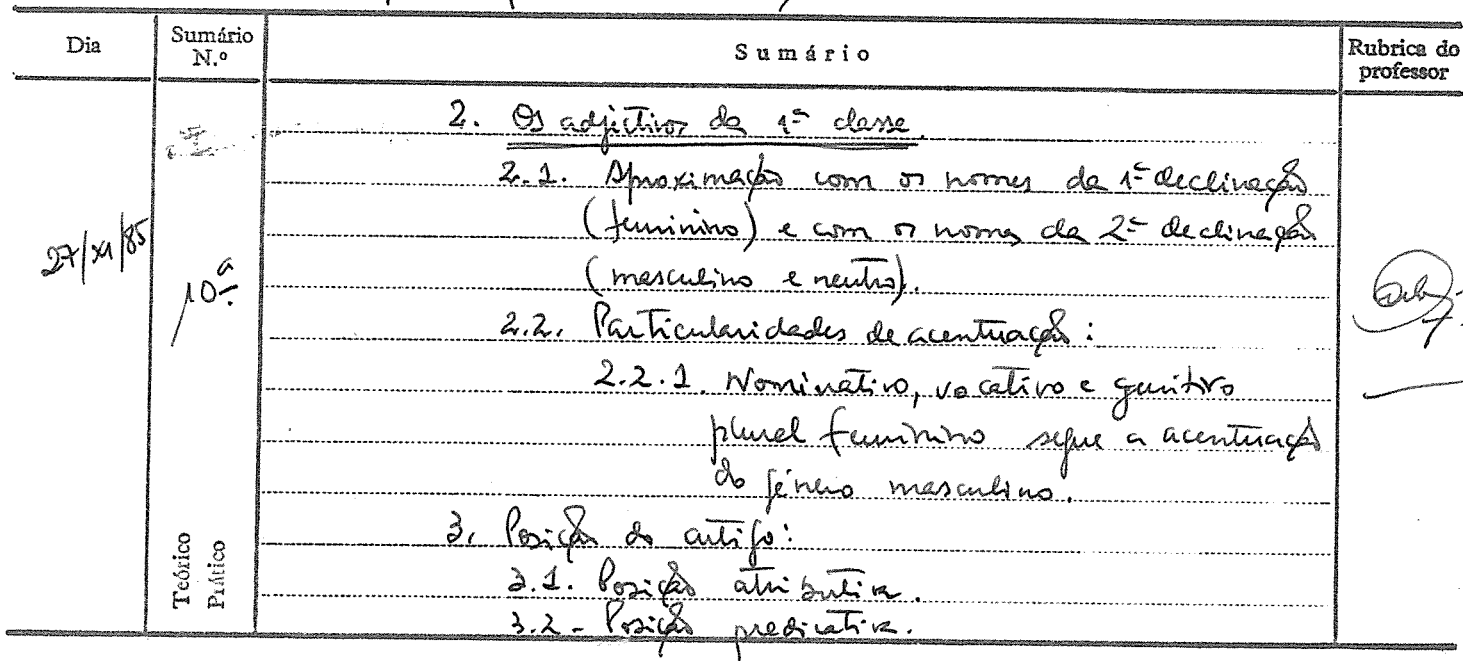 Dia
Sumário N.º
Sumário
Rubrica do professor
27/XI/85
10ª
Teórico
Prático
2. Os adjectivos da 1ª classe.
2.1. Aproximação com os nomes da 1ª declinação
(feminino) e com os nomes da 2ª declinação
(masculino e neutro).
2.2. Particularidades de acentuação:
2.2.1. Nominativo, vocativo e genitivo
plural feminino segue a acentuação
do género masculino.
3. Posição do artigo:
3.1. Posição atributiva.
3.2 - Posição predicativa.